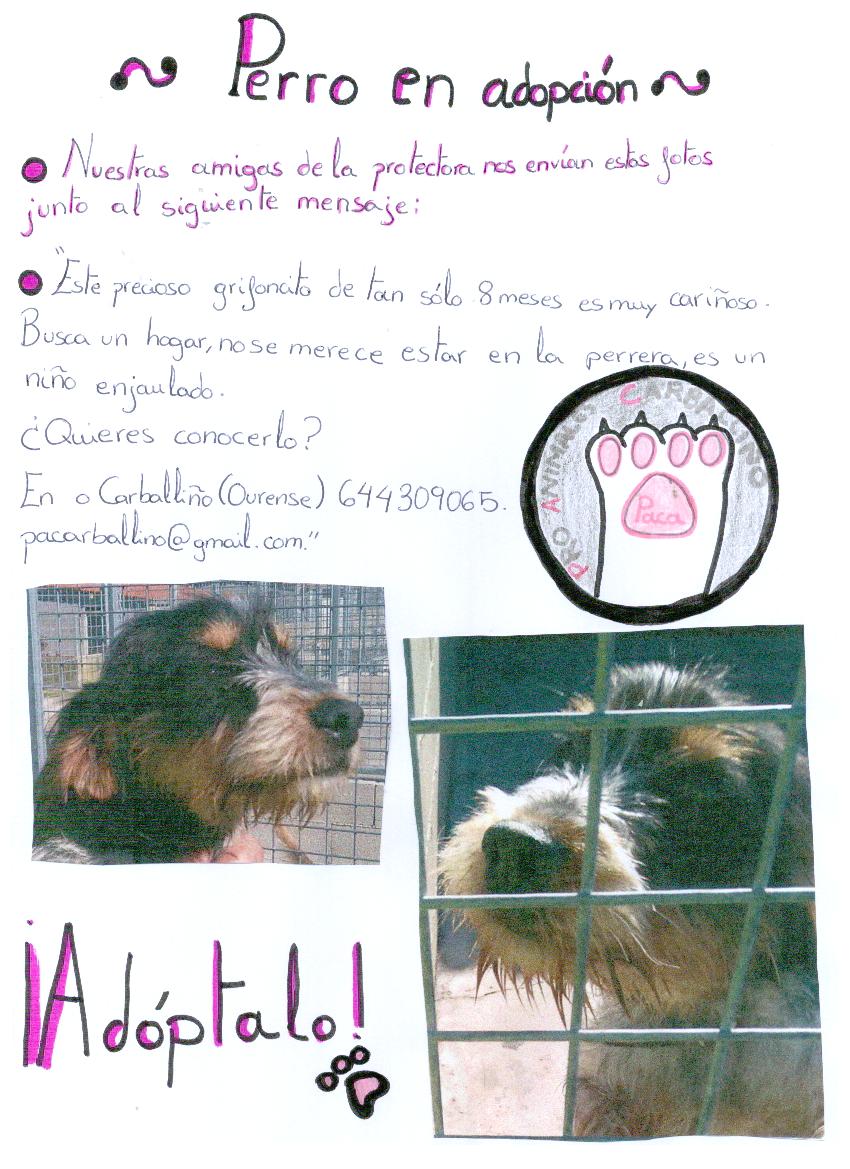 ~ Perro en adopción ~
Nuestras amigas de la protectora nos envían estas fotos
junto al siguiente mensaje:
"Este precioso grifoncito de tan sólo 8 meses es muy cariñoso.
Busca un hogar, no se merece estar en la perrera, es un
niño enjaulado.
¿Quieres conocerlo?
En o Carballiño (Ourense) 644309065.
pacarballino@gmail.com."
PRO ANIMALES CARBALLIÑO
Paca
¡Adóptalo!